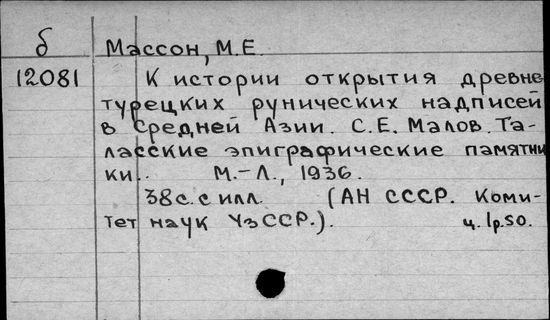 б Массон, М.Е.
12081 К истории открытия древне
турецких рунических надписей
в Средней Азии. С.Е. Малов. Та-
ласские эпиграфические памятни
ки. М.-Л., 1936.
38с. с илл. (АН СССР. Коми-
тет наук УзССР.). ц. 1р.50.